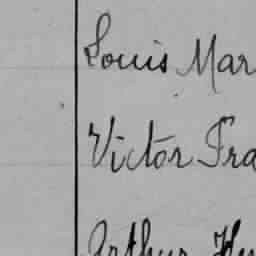 Louis Mar
Victor Fra
Arthur Hu